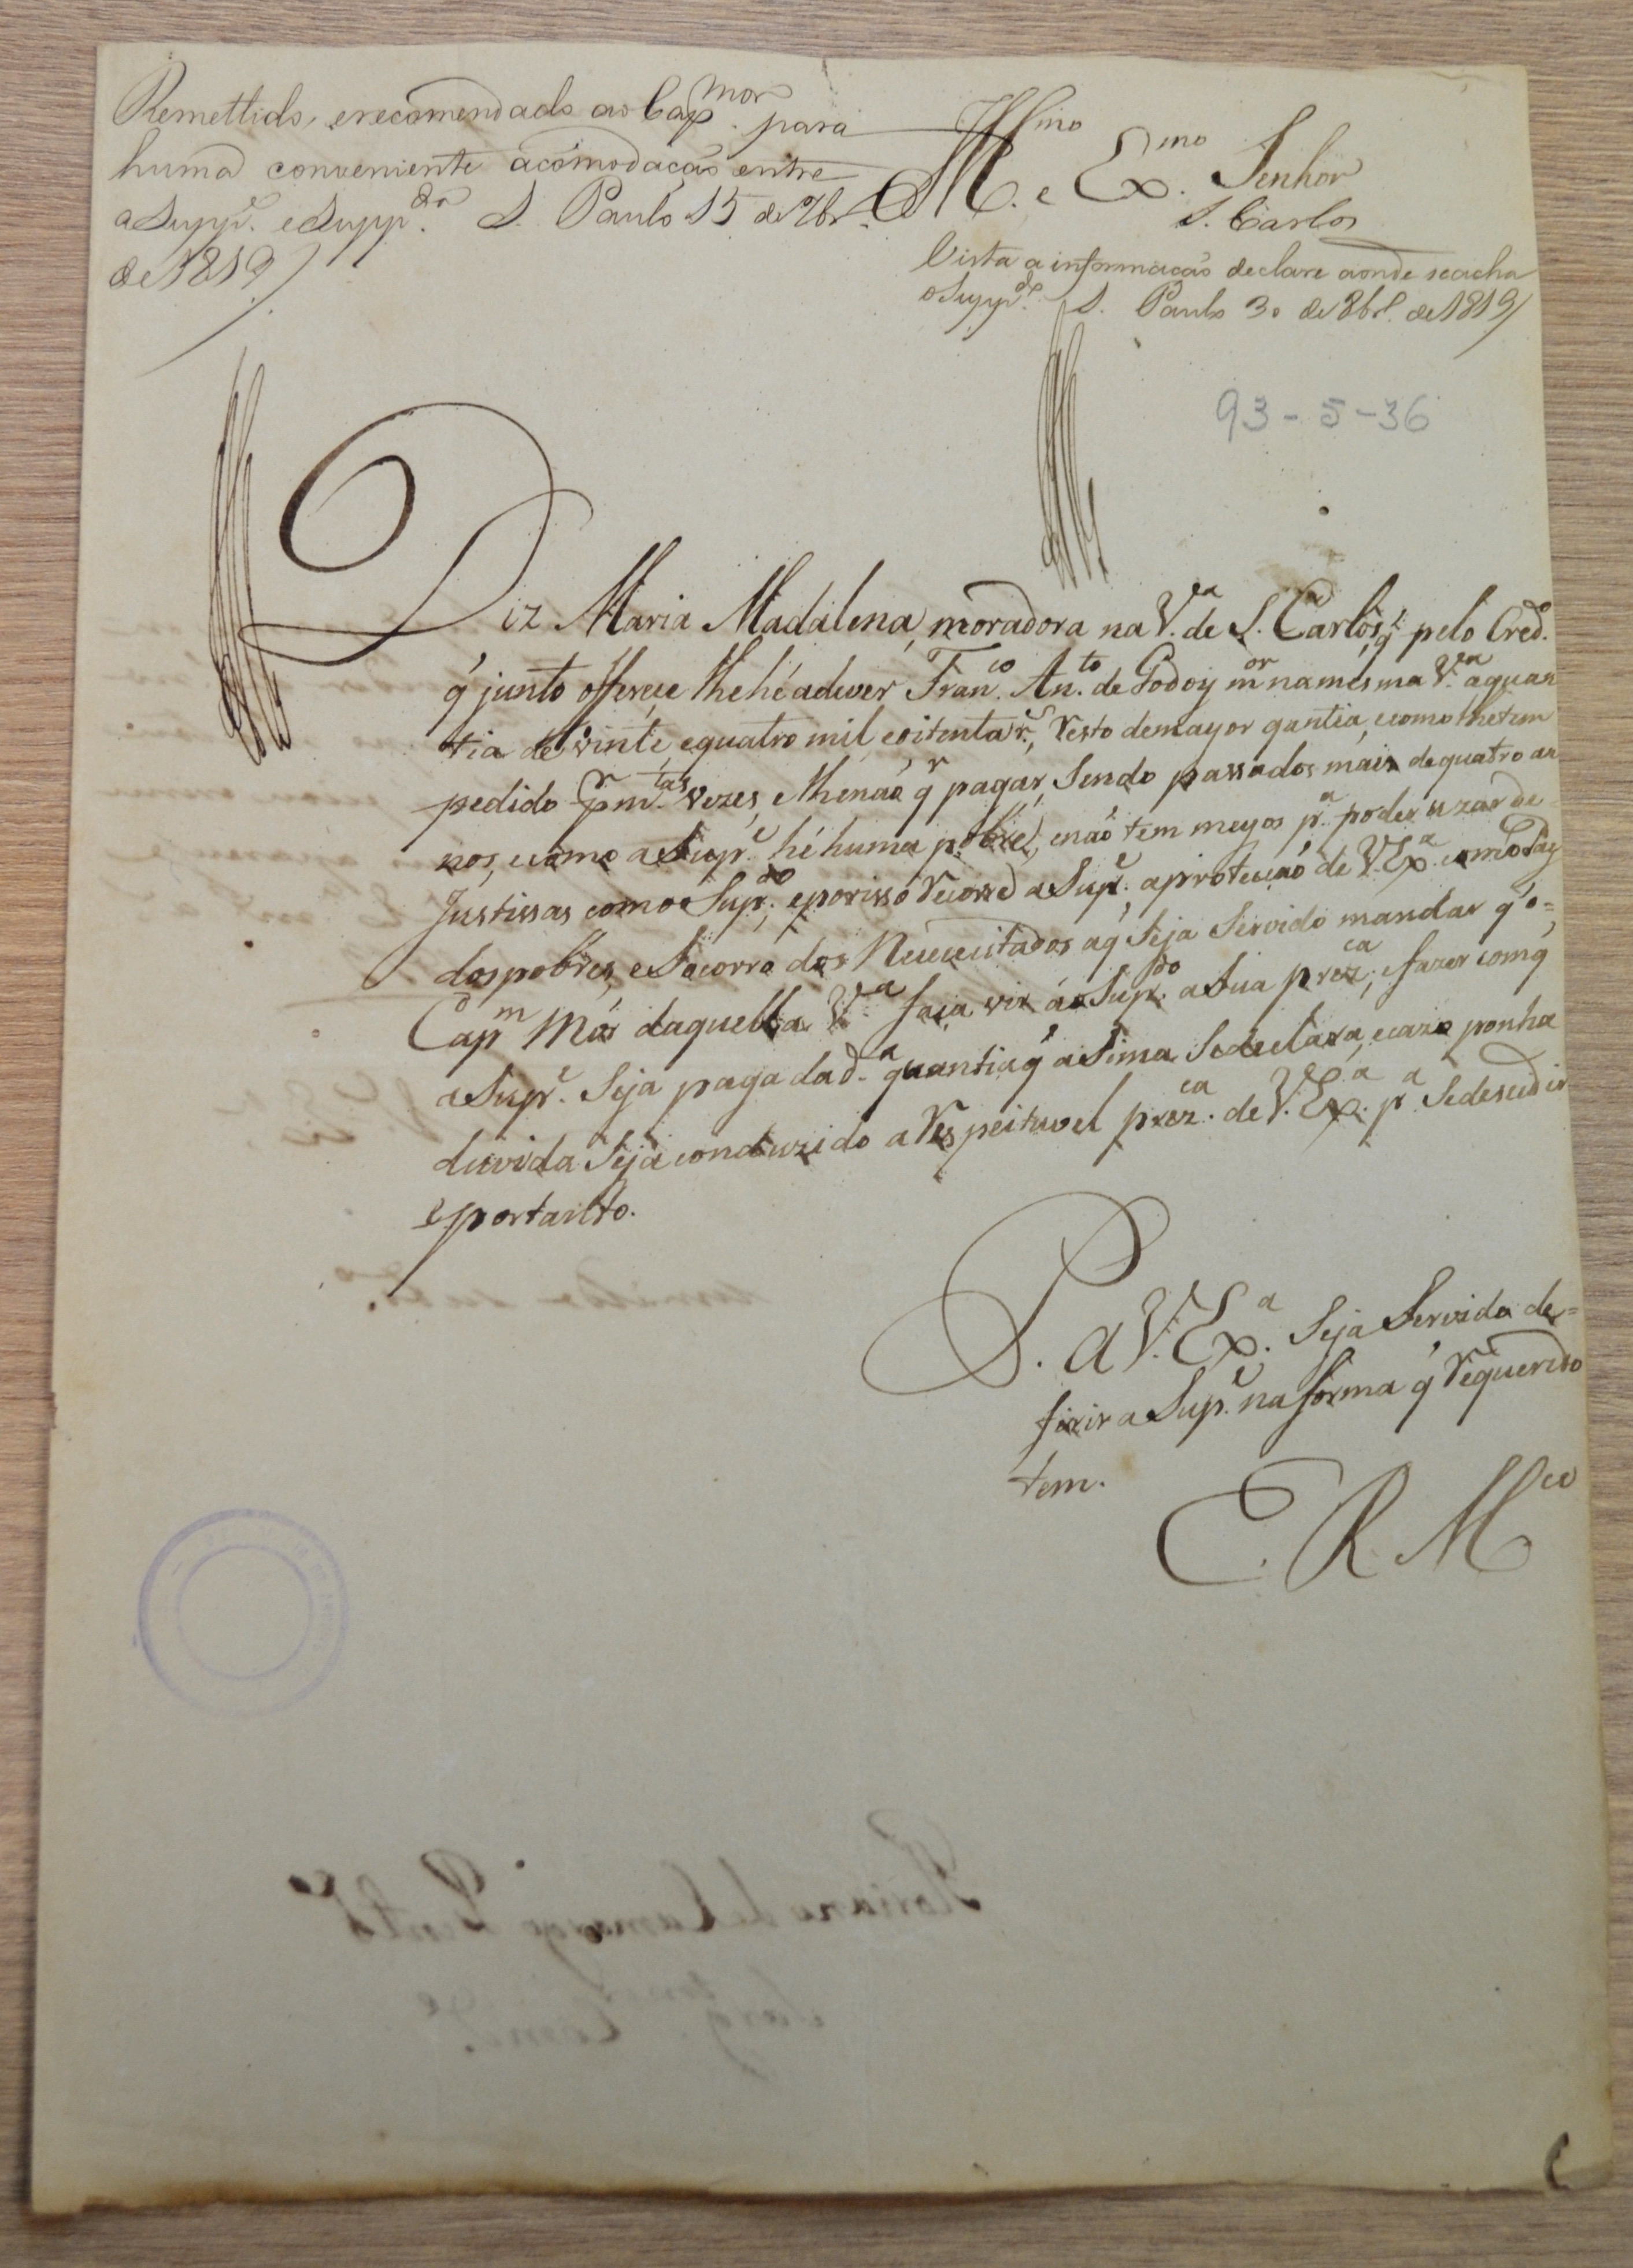 Remettido, e recomendado ao Cap.mor para
huma conveniente acómodação entre
a Supp.e e Supp.do S. Paulo 15 de 9br.o
de 1819
Ill.mo e Ex.mo Senhor
S. Carlos
Vista a informação declare aonde se acha
o Supp.do S. Paulo 30 de 8br.o de 1819
93-5-36
Diz Maria Madalena, moradora na V.a de S. Carlos, q' pelo Cred.
q' junto offerece lhe hé a dever Fran.co An.to de Godoy m.or na mesma V.a a quan
tia de vinte, e quatro mil e oitenta r.s, resto de mayor qantia, e como lhe tem
pedido p.r m.tas vezes, e lhe não q.r pagar, Sendo passados mais de quatro an
nos, e como a Sup.e hé huma pobre, e não tem meyos p.a poder uzar de
Justissas com o Sup.do, e por isso recorre a Sup.e, a protecção de V. Ex.a como Pay
dos pobres, e Socorro dos Necececitados a q' Seja Servido mandar q' o=
Cap.m Mór daquella V.a faça vir ao Sup.do a Sua prez.ca, e fazer com q'
a Sup.e Seja paga da d.a quantia q' a Sima Se declara, e cazo ponha
duvida Seja conduzido a respeitavel prez.ca de V. Ex.a p.a Se descudir
e portanto.
P. a V. Ex.a Seja Servido de=
firir a Sup.e na forma q' requerido
tem.
E. R. M.ce